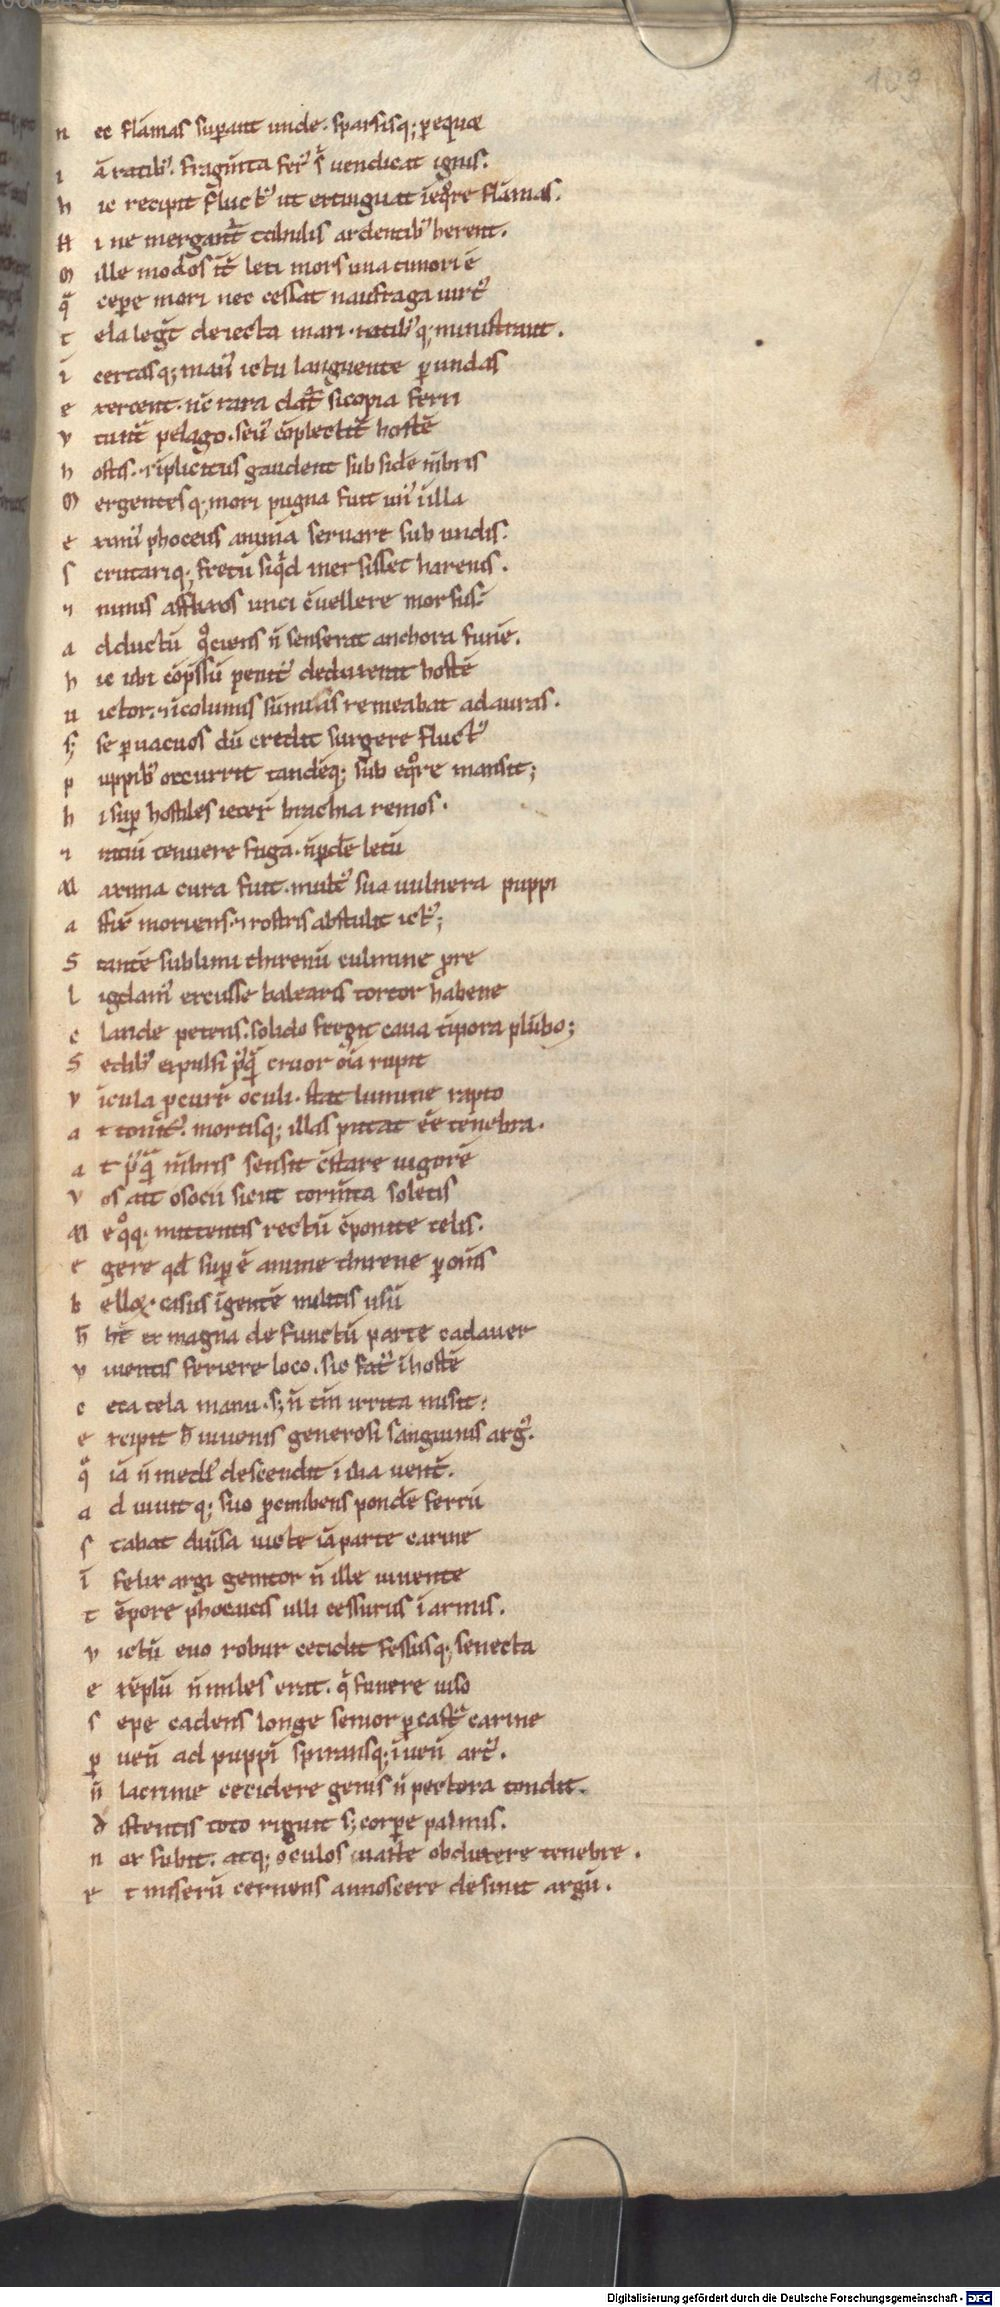 109
n ec flāmas suꝑant unde. sparsisq; ꝑ equoꝝ
i ā ratib᷒. fragm̄ta fer᷒ s̄ uendicat ignis.
h ic recipit fluct᷒ ut extinguat īeq̊re flāmas.
H i ne mergant᷑ tabulis ardentib᷒ herent.
M ille modos īt̄ leti mors una timori ē
q̄ cepe mori nec cessat naufraga uirt᷒
t ela leḡt deiecta mari. ratib᷒q; ministrant.
i certasq; man᷒ ictu languente ꝑ undas
e xercent. nc̄ rara dat᷑ si copia ferri
v tunt᷑ pelago. seu᷒ cōplectit᷑ hostē
h ostis. ⁊ īplicitus gaudent subside mēbris
M ergentesq; mori pugna fuit un᷒ ī illa
e ximi᷒ phoceus animā seruare sub undis.
s crutariq; fretū siq̇d mersisset harenis.
⁊ nimis affixos unci ↄuellere morsus.
a dductū q̊ciens n̄ senserat anchora funē.
h ic ubi cōpssū penit᷒ deduxerat hostē
u ictor. ⁊ īcolumis sūmas remeabat ad auras.
s; se ꝑ uacuos dū credit surgere fluct᷒
p uppib᷒ occurrit tandēq; sub eq̊re mansit;
h i suꝑ hostiles iecer̄ brachia remos.
⁊ ratiū tenuere fugā. n̄ pd̄e letū
M axima cura fuit. mult᷒ sua uulnera puppi
a ffix̄ moriens. ⁊ rostris abstulit ict᷒;
S tantē sublimi thirenū culmine ꝓre
l igdam᷒ excusse balearis tortor habene
c lande petens. solido fregit caua tīpora plūbo;
S edib᷒ expulsi p᷒q̄ cruor oīa rupit
v īcula ꝓcurr̄ oculi. stat lumine rapto
a ttonit᷒. mortisq; illas putat ēē tenebra.
a t p᷒q̄ mēbris sensit ↄstare uigorē
v os ait o socii sicut torm̄ta soletis
M e q̊q; mittentis rectū ↄponite telis.
e gere qd̄ suꝑ ē anime thirene ꝑ om̄s
b elloꝝ. casus īgentē militis usū
h̄ bēt ex magna defunctū parte cadauer
v iuentis feriere loco. sic fat᷒ ī hostē
c eca tela manu. s; n̄ tm̄ irrita misit.
e xcipit h̄ iuuenis generosi sanguinis arg᷒.
q̄ iā n̄ medi᷒ descendit ī ilia uent᷑.
a diuuitq; suo ꝓcumbens pond̄e ferrū
s tabat diuisa uicte iā parte carine
i felix argi genitor n̄ ille iuuente
t ēpore phocaicis ulli cessurus ī armis.
v ictū euo robur cecidit fessusq; senecta
e xēplū n̄ miles erat. q̄ funere uiso
s epe cadens longe senior ꝑ cast᷑ carine
ꝑ uen̄ ad puppī spiransq; īuen̄ art᷒.
n̄ lacrime cecidere genis n̄ pectora tondit.
d istentis toto riguit s; corꝑe palmis.
n ox subit. atq; oculos uaste obduxere tenebre.
e t miserū cernens annoscere desinit argū.
Digitalisierung gefördert durch die Deutsche Forschungsgemeinschaft - DFG